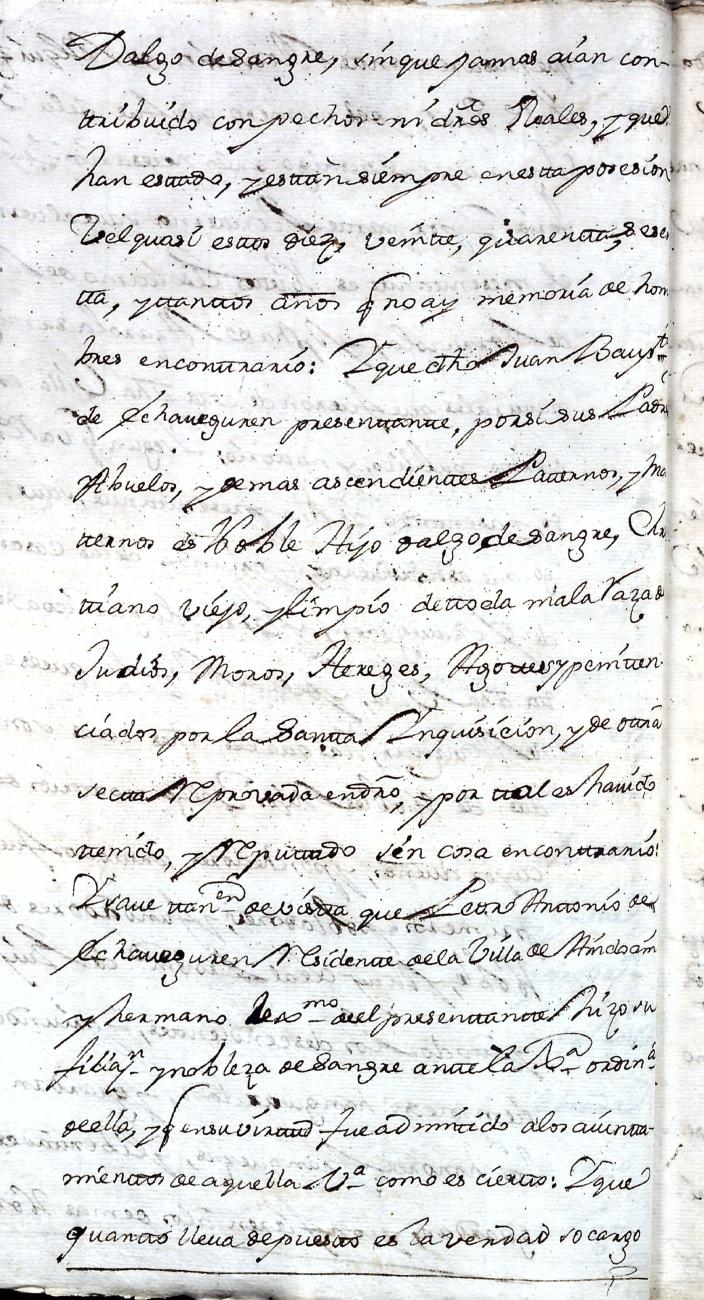 Dalgo de Sangre, sin que jamas aían con-
ttribuido con pechos ni dros Reales, y que
han estado, y esttan siempre en estta posesion
Vel quasi esttos díez, veintte, quarentta, sesen
tta, y ttanttos años q no ay memoria de hom
bres en conttrario: Y que dho Juan Baupt.ta
de Echaveguren presenttante, por si sus Padr
Abuelos, y demas ascendienttes Patternos, y Ma
tternos es Noble Hijo dalgo de Sangre, Chr
ttiano viejo, y limpio de ttoda mala Raza de
Judios, Moros, Hereges, Agottes y penitten
ciados por la Santta Inquisicion, y de ottra
sectta Reprovada en dro, y por ttal es havido
ttenido, y Reputtado sin cosa en conttrario:
Y save ttan.en de vistta que Pedro Antonio de
Echaveguren Residentte de la Villa de Andoain
y hermano lex.mo de el presenttante hizo su
filia.n y nobleza de Sangre antte la J.a ordin.a
de ella, y q en su virttud fue admitido a los aiuntta-
mienttos de aquella V.a como es cierto: Y que
quantto lleva depuestto es la verdad so cargo